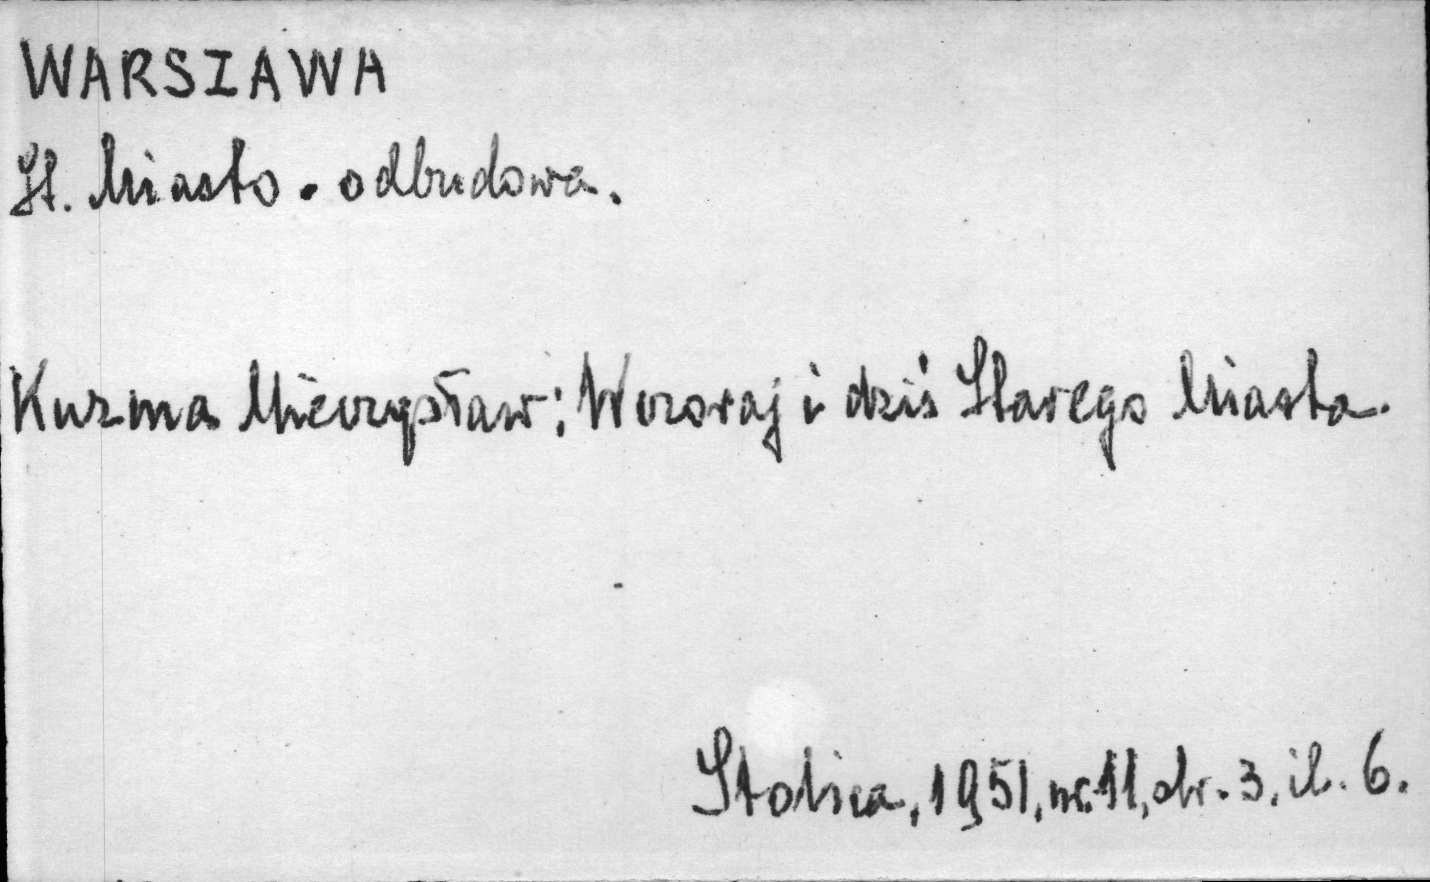 WARSZAWA
St. Miasto. odbudowa.
Kuzma Mieczysław: Wczoraj i dziś Starego Miasta.
Stolica, 1951, nr. 11, str. 3, il. 6.